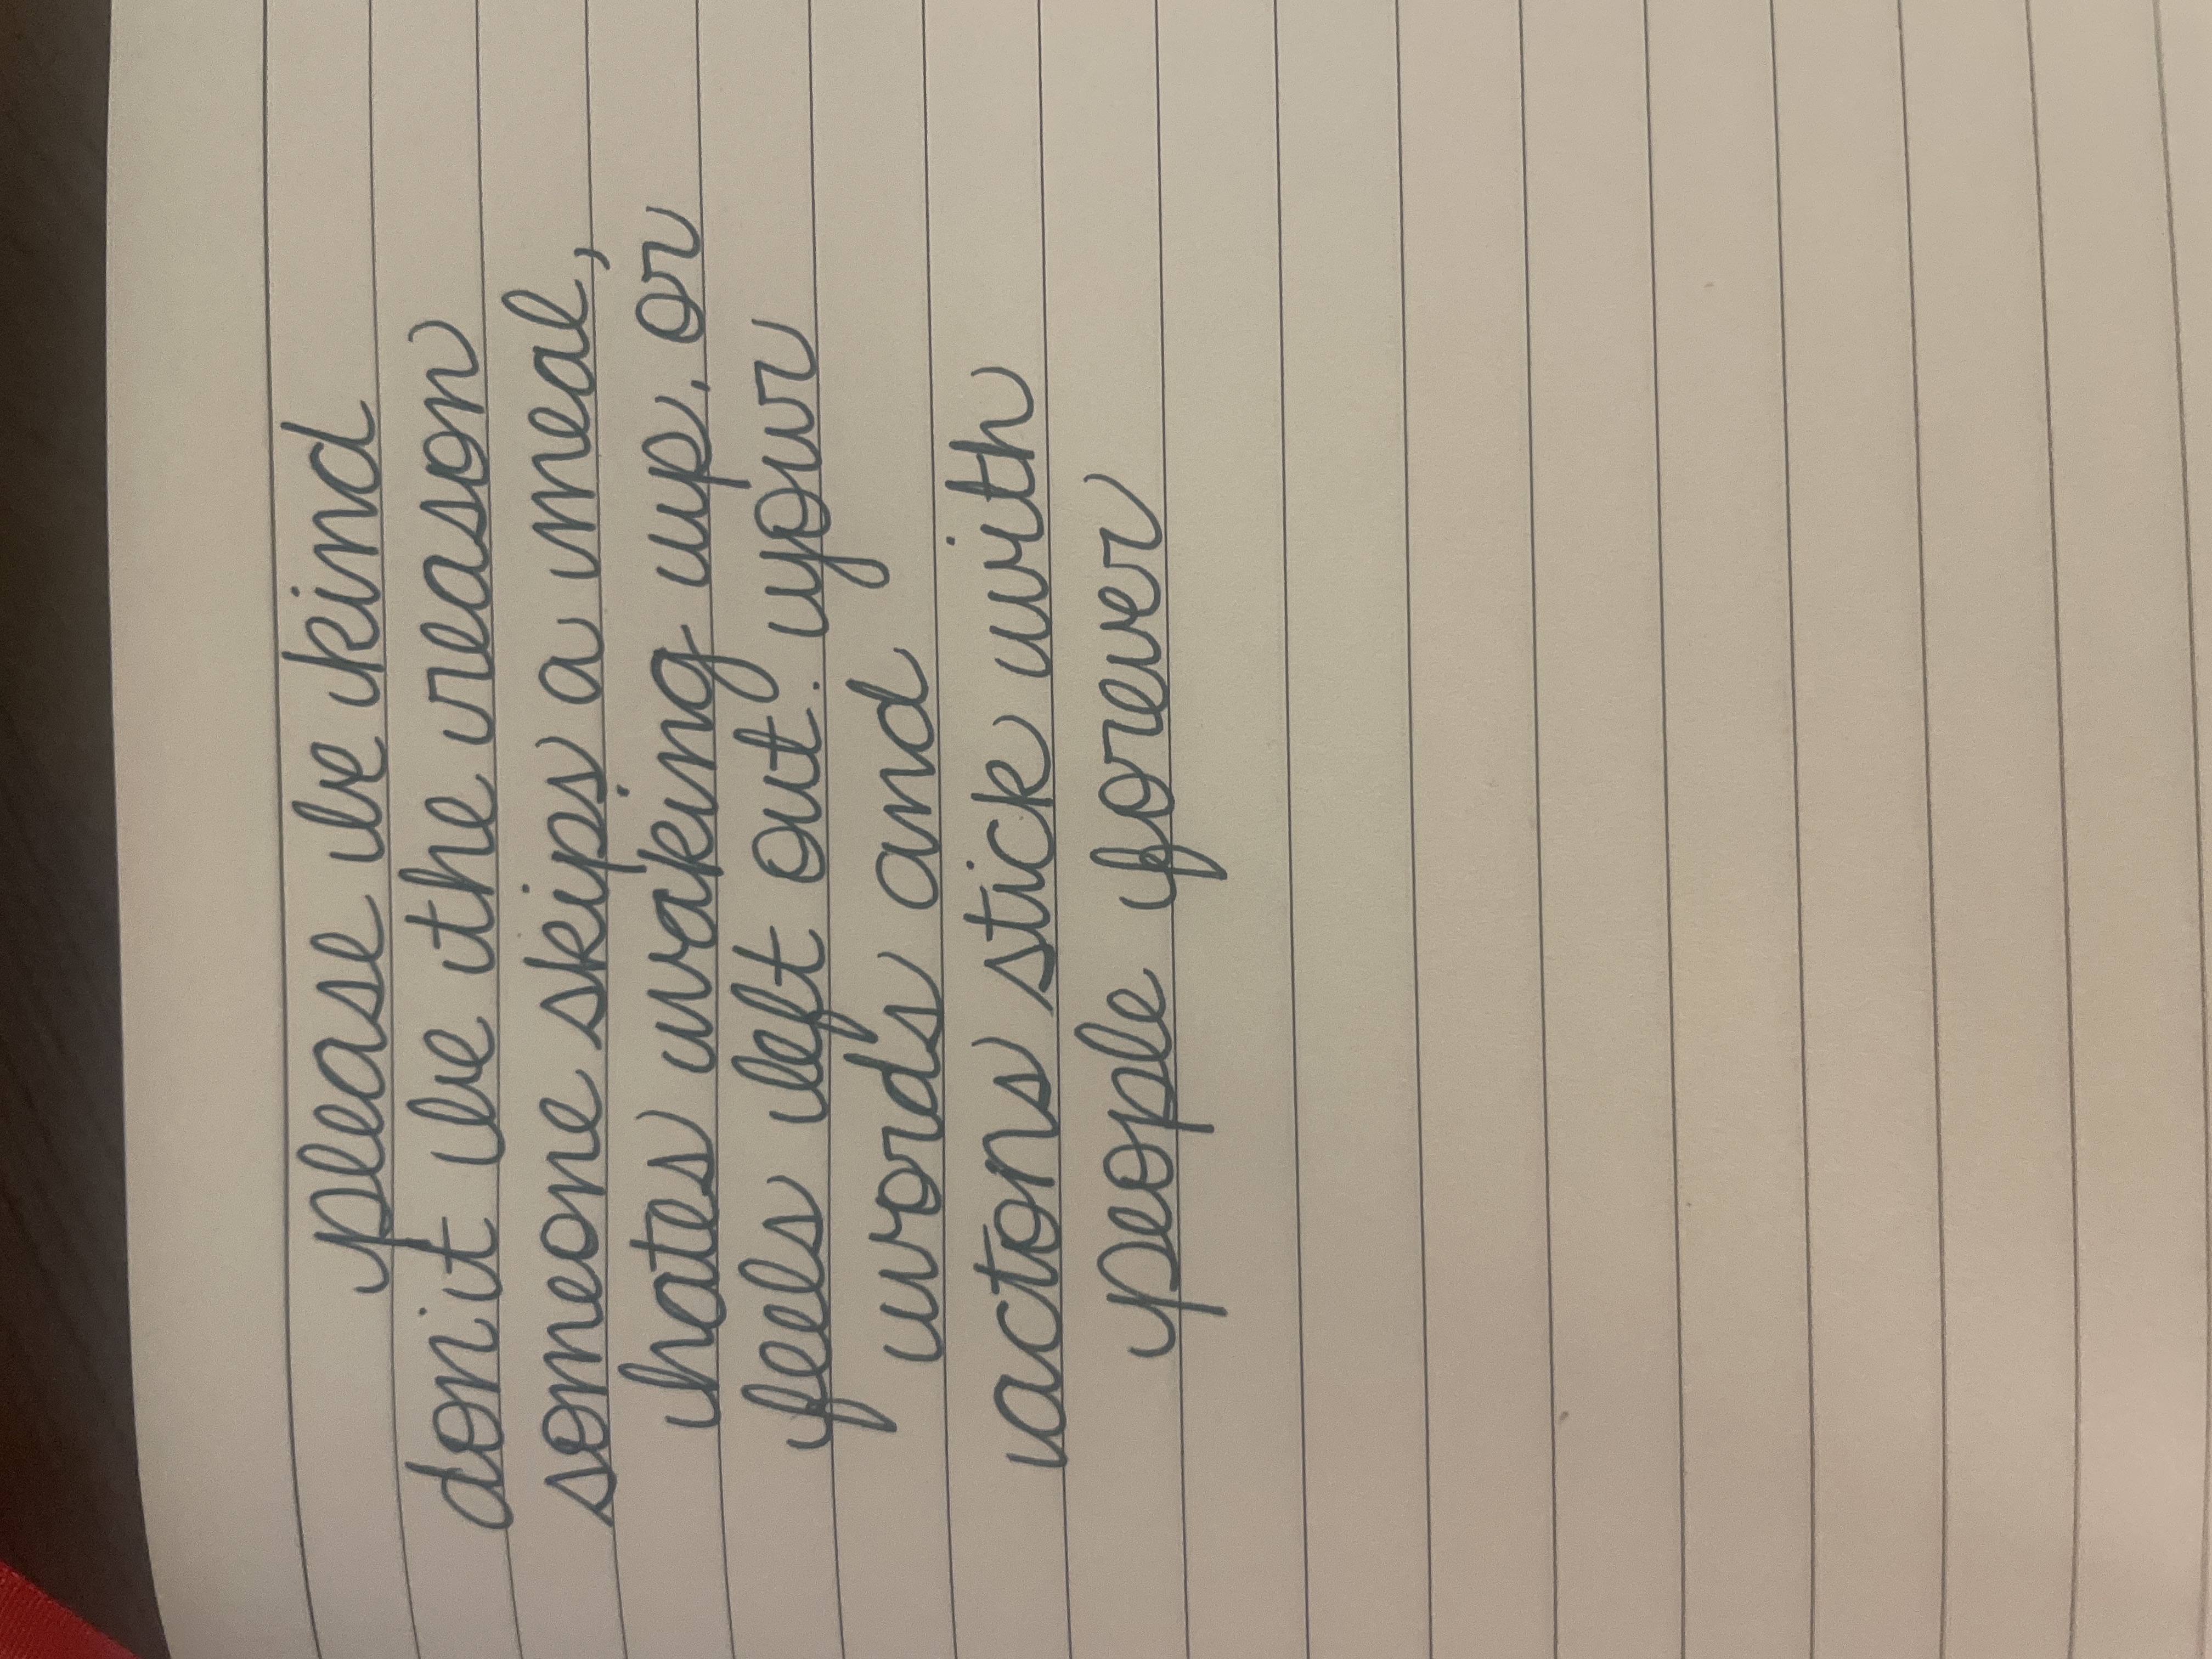 please be kind
don't be the reason
someone skips a meal,
hates waking up, or
feels left out. your
words and
actons stick with
people forever